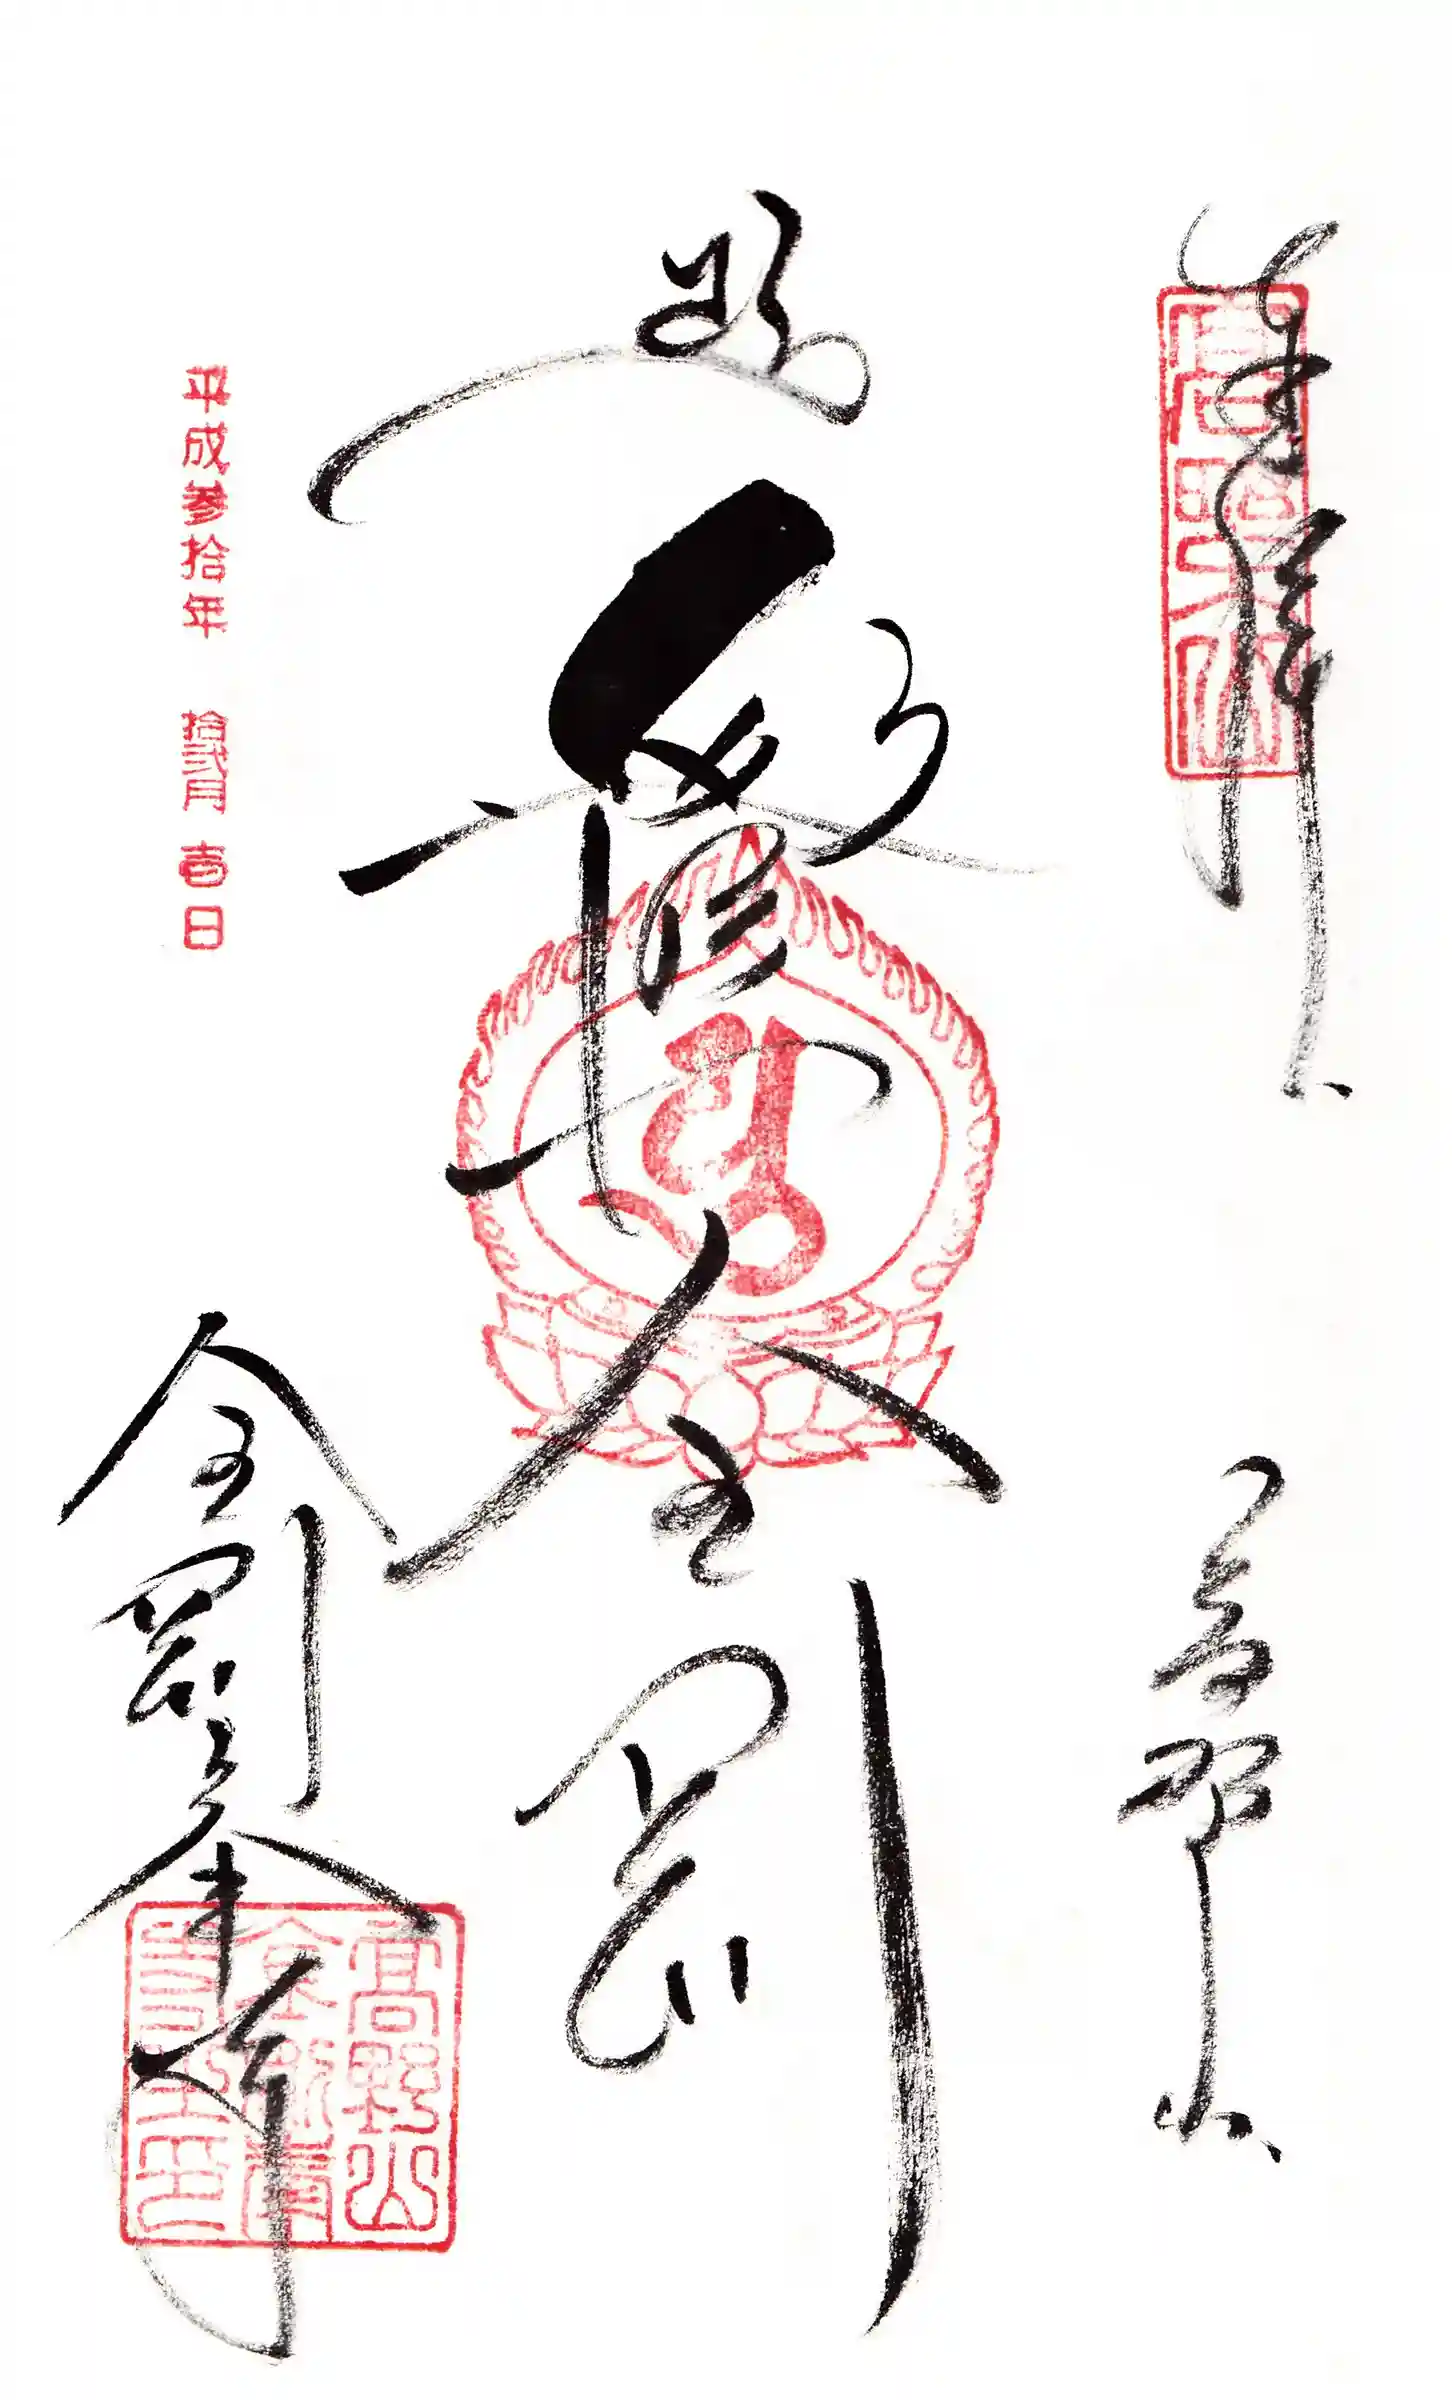 奉拝
高野山
高野山
遍照金剛
平成参拾年 拾弐月 壱日
金剛峯寺
高野山
金剛峯
寺主印